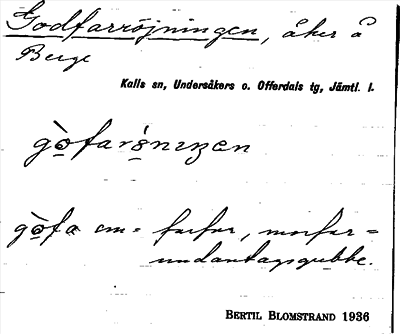 Godfarröjningen, åker å
Berge
Kalls sn, Undersåkers o. Offerdals tg, Jämtl. l.
gòfarö́nıŋen
gòfa em = farfar, morfar =
undantagsgubbe.
BERTIL BLOMSTRAND 1936